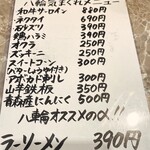 八輪気まぐれメニュー
和牛サーロイン 880円
ネクタイ 690円
砂ズリ 390円
鶏ハラミ 390円
オクラ 250円
ズッキーニ 250円
スイートコーン 300円
(バターしょうゆ付き)
アボカド刺し 300円
山芋鉄板 350円
青森産にんにく 500円
八輪オススメの〆!!
ラーソーメン 390円